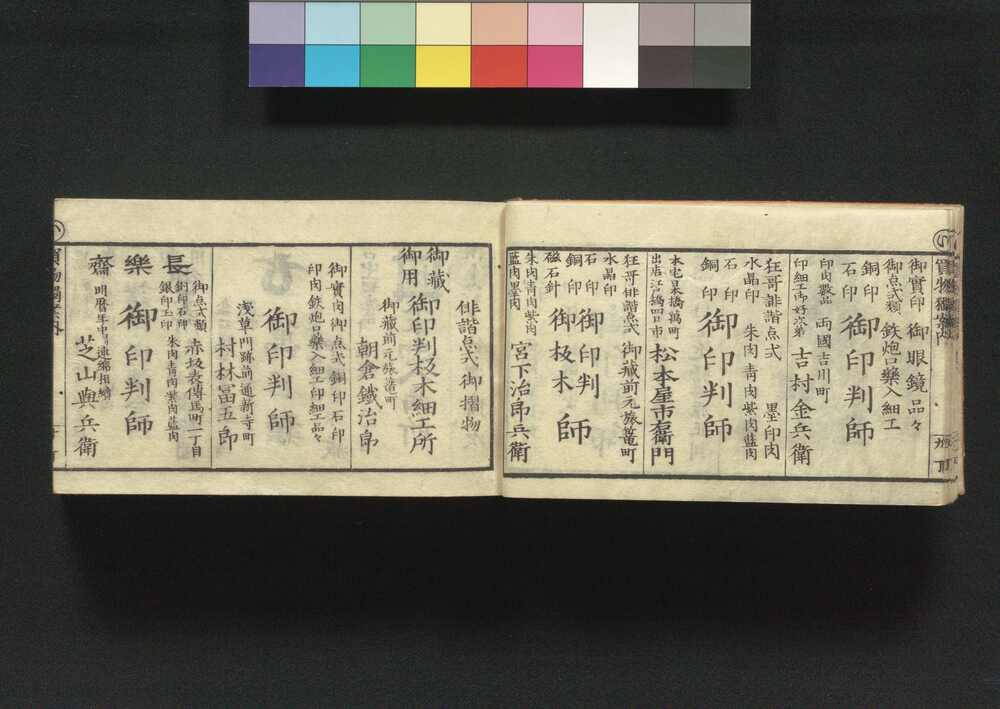 御實印 御眼鏡 品々
御点式類 鉄炮口藥入細工
銅印
石印
御印判師
印肉數品 両國吉川町
印細工御好次第
吉村金兵衛
狂哥誹諧点式 墨印肉
水晶印 朱肉青肉紫肉藍肉
石印
銅印
御印判師
本宅呉服橋町
出店江戸橋四日市
松本屋市左衛門
狂哥俳諧点式 御藏前元旅篭町
水晶印
石印
銅印
磁石針
御印判
御板木
師
朱肉青肉紫肉
藍肉墨肉
宮下治郎兵衛
俳諧点式 御摺物
御藏
御用
御印判板木細工所
御藏前元旅篭町
朝倉鐵治郎
御實肉御点式 銅印石印
印肉鉄炮口藥入細工印細工品々
御印判師
浅草門跡前通新寺町
村林冨五郎
長樂齋
御点式類
銅印石印
銀印玉印
赤坂表傳馬町一丁目
朱肉青肉紫肉藍肉
御印判師
明暦年中連綿相續
芝山與兵衛